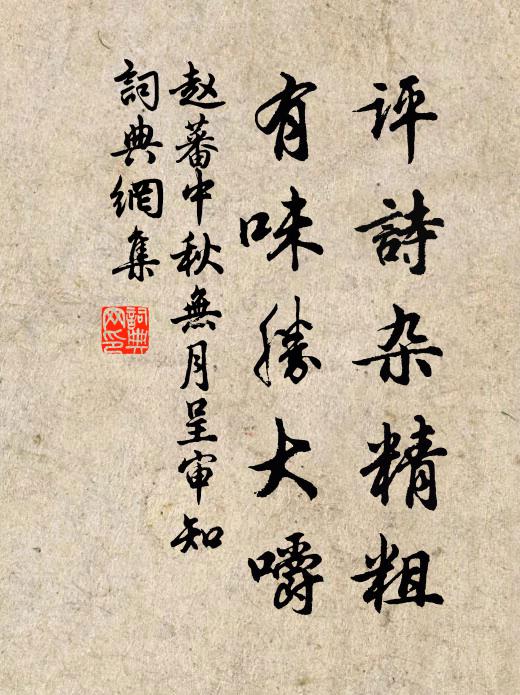 评詩杂精粗
有味勝大嚼
赵蕃中秋無月呈审知
詞典網集
詞典网印